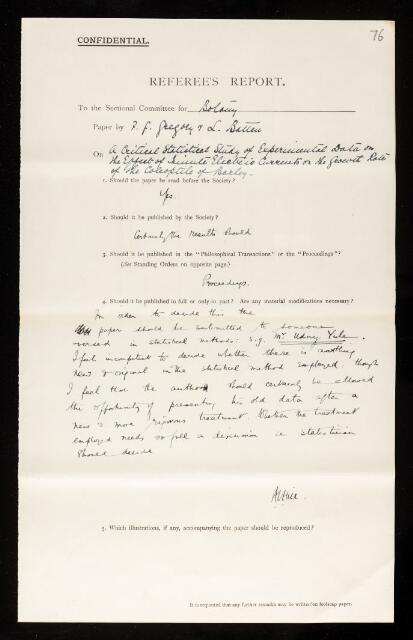 CONFIDENTIAL.
76
REFEREE'S REPORT.
To the Sectional Committee for Botany
Paper by F. G. Gregory & L. Batten
On A Critical Statistical Study of Experimental Data on
the Effect of Minute Electric Currents on the Growth Rate
of the Coleoptile of Barley.
1. Should the paper be read before the Society?
Yes.
2. Should it be published by the Society?
Certainly the results should
3. Should it be published in the "Philosophical Transactions" or the "Proceedings"?
(See Standing Orders on opposite page.)
Proceedings.
4. Should it be published in full or only in part? Are any material modifications necessary?
In order to decide this the
paper should be submitted to someone
versed in statistical methods: e.g. Mr Udney Yule.
I feel incompetent to decide whether there is anything
new & original in the statistical method employed, though
I feel that the author should certainly be allowed
the opportunity of presenting his old data after a
new & more rigorous treatment. Whether the treatment
employed needs so full a discussion a statistician
should decide
5. Which illustrations, if any, accompanying the paper should be reproduced?
It is requested that any further remarks may be written on foolscap paper.